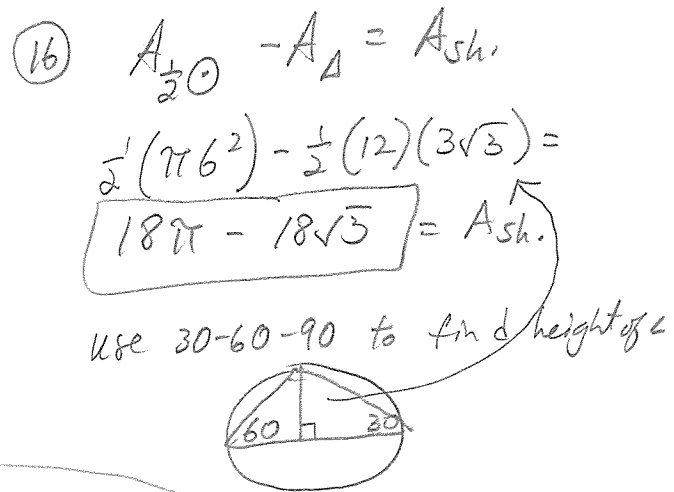 16 A½⊙ - A△ = Ash.
½(π6²) - ½(12)(3√3) =
18π - 18√3 = Ash.
use 30-60-90 to find height of
60 30